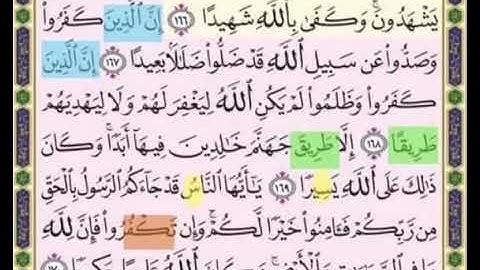 يَشْهَدُونَ ۚ وَكَفَىٰ بِٱللَّهِ شَهِيدًا ١٦٦ إِنَّ ٱلَّذِينَ كَفَرُوا۟
وَصَدُّوا۟ عَن سَبِيلِ ٱللَّهِ قَدْ ضَلُّوا۟ ضَلَٰلًۢا بَعِيدًا ١٦٧ إِنَّ ٱلَّذِينَ
كَفَرُوا۟ وَظَلَمُوا۟ لَمْ يَكُنِ ٱللَّهُ لِيَغْفِرَ لَهُمْ وَلَا لِيَهْدِيَهُمْ
طَرِيقًا ١٦٨ إِلَّا طَرِيقَ جَهَنَّمَ خَٰلِدِينَ فِيهَآ أَبَدًا ۚ وَكَانَ
ذَٰلِكَ عَلَى ٱللَّهِ يَسِيرًا ١٦٩ يَٰٓأَيُّهَا ٱلنَّاسُ قَدْ جَآءَكُمُ ٱلرَّسُولُ بِٱلْحَقِّ
مِن رَّبِّكُمْ فَـَٔامِنُوا۟ خَيْرًا لَّكُمْ ۚ وَإِن تَكْفُرُوا۟ فَإِنَّ لِلَّهِ
مَا فِى ٱلسَّمَٰوَٰتِ وَٱلْأَرْضِ ۚ وَكَانَ ٱللَّهُ عَلِيمًا حَكِيمًا